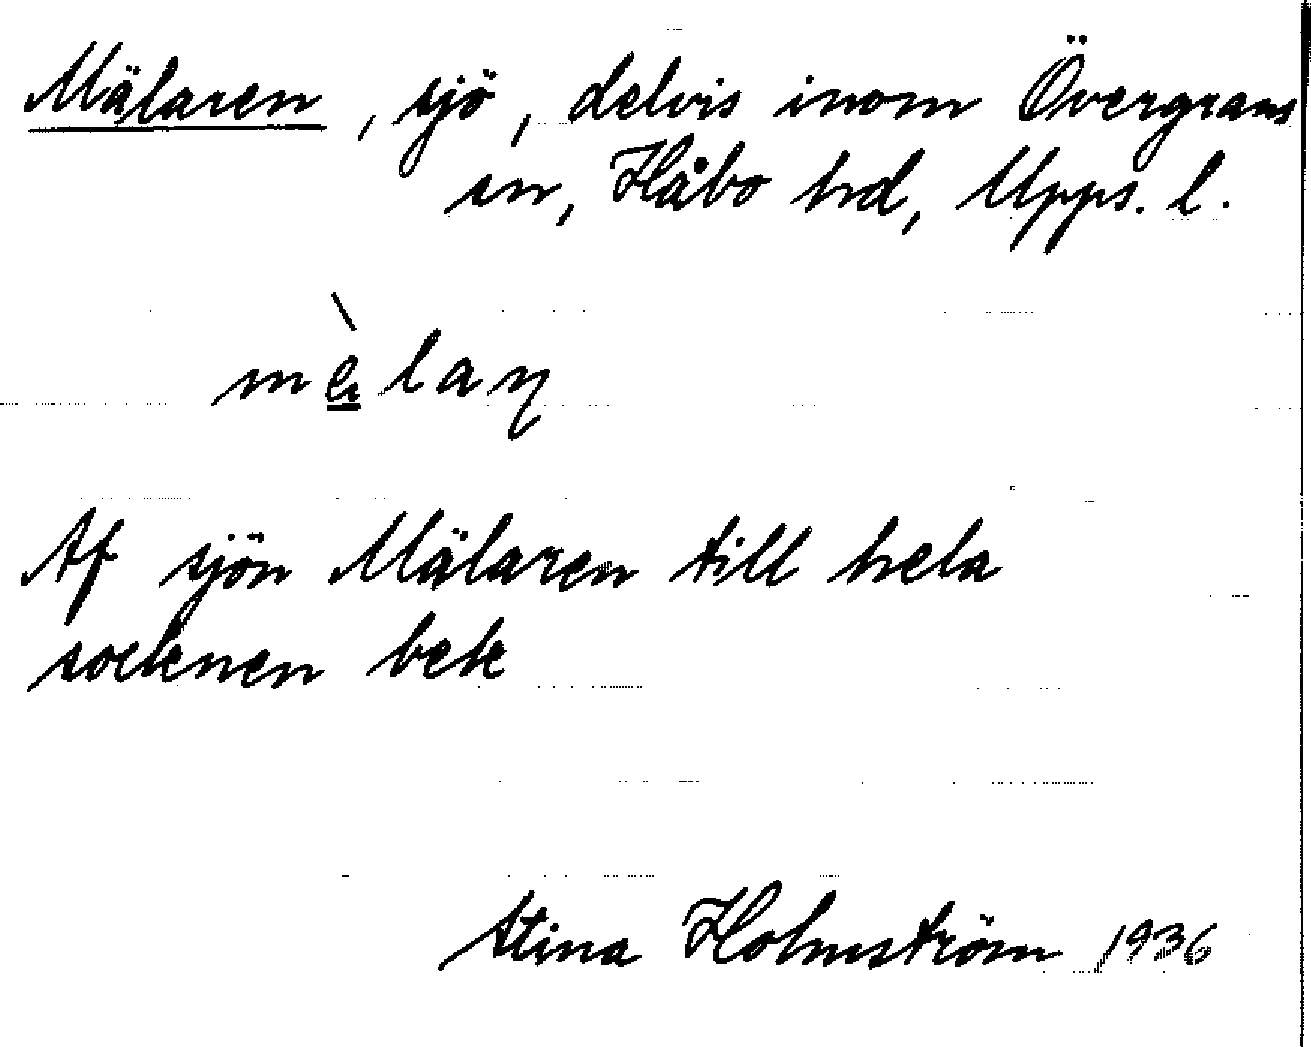 Mälaren, sjö, delvis inom Övergrans
sn, Håbo hd, Upps. l.
Af sjön Mälaren till hela
socknen bek
Stina Holmström 1936